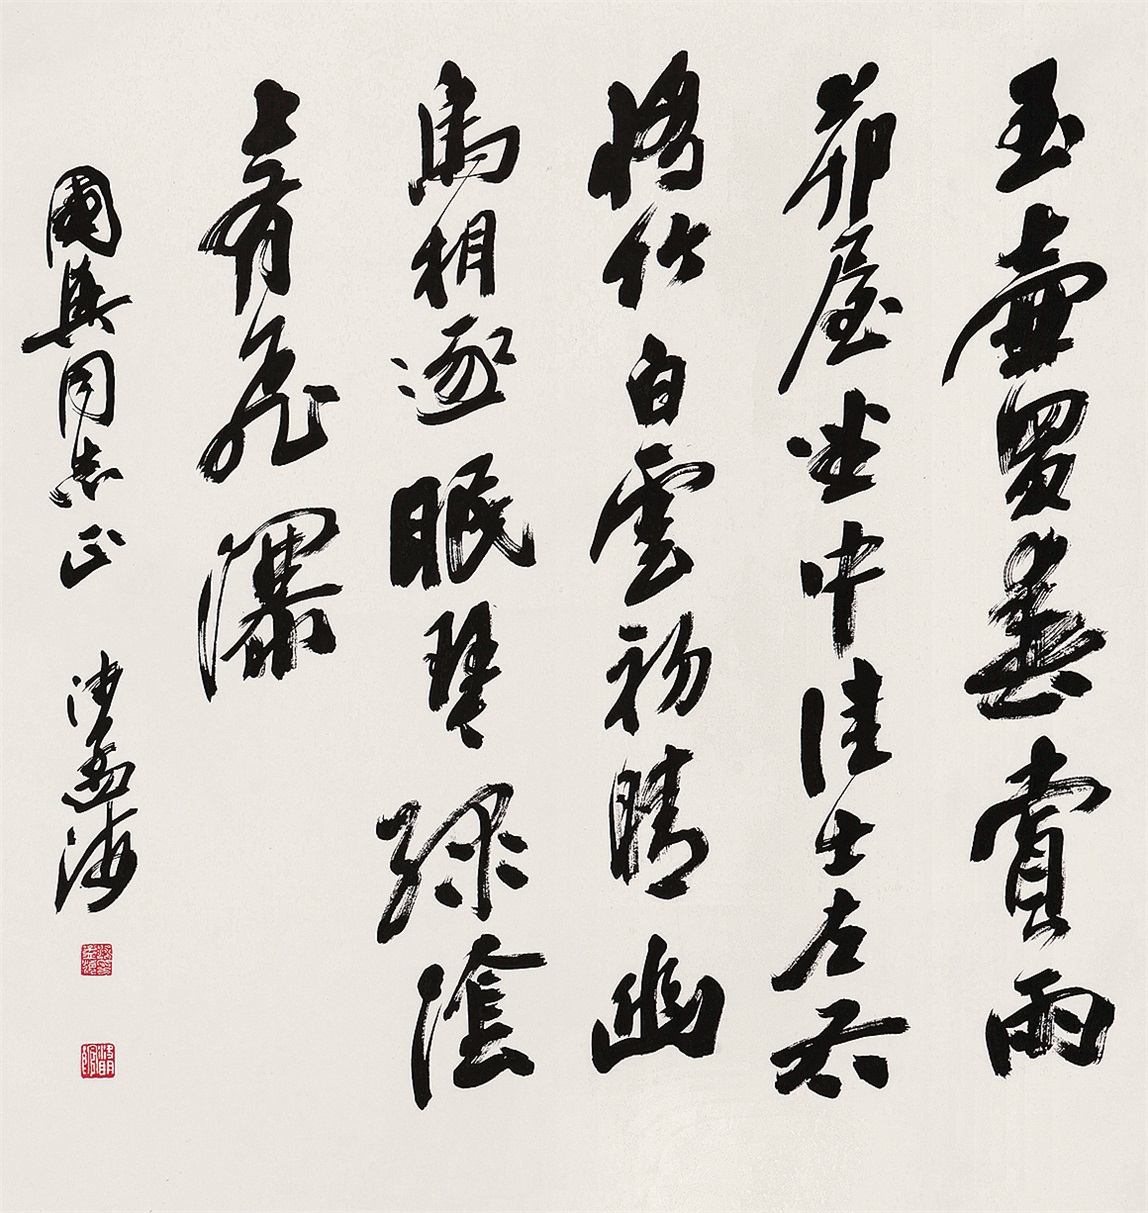 玉壺買春賞雨
茆屋坐中佳士左右
脩竹白雲初晴幽
鳥相逐眠琴綠陰
上有飛瀑
國興同志正 沙孟海